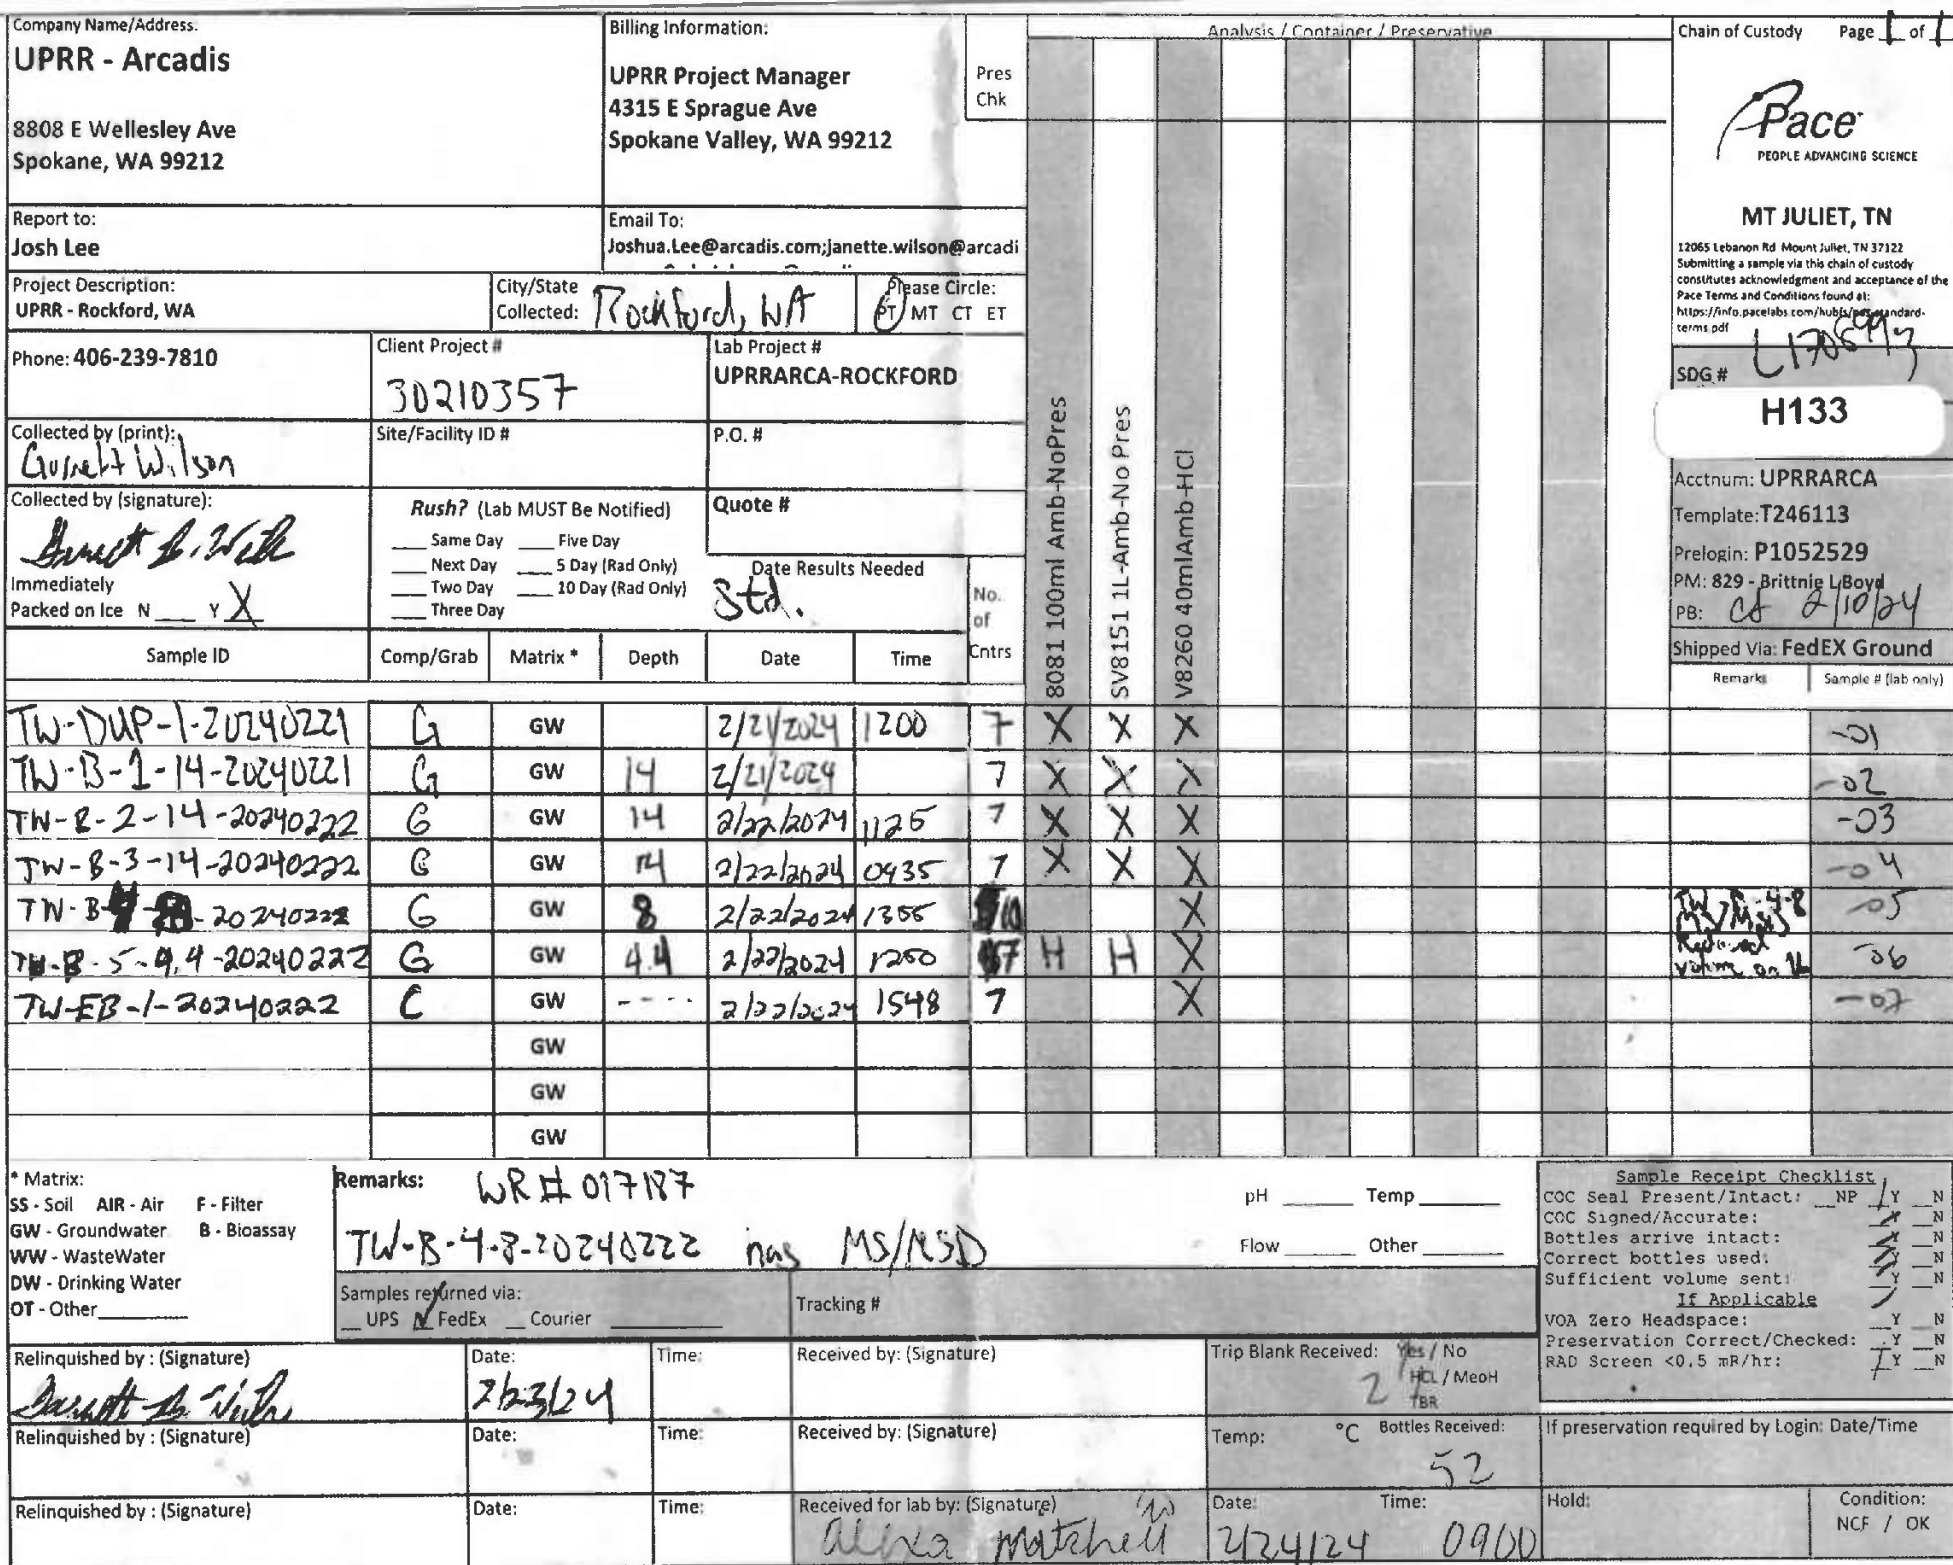 Company Name/Address:
UPRR - Arcadis
8808 E Wellesley Ave
Spokane, WA 99212
Billing Information:
UPRR Project Manager
4315 E Sprague Ave
Spokane Valley, WA 99212
Pres
Chk
Analysis / Container / Preservative
Chain of Custody Page 1 of 1
Pace
PEOPLE ADVANCING SCIENCE
MT JULIET, TN
12065 Lebanon Rd Mount Juliet, TN 37122
Submitting a sample via this chain of custody
constitutes acknowledgment and acceptance of the
Pace Terms and Conditions found at:
https://info.pacelabs.com/hubfs/pas-standard-
terms.pdf
Report to:
Josh Lee
Email To:
Joshua.Lee@arcadis.com;janette.wilson@arcadi
Project Description:
UPRR - Rockford, WA
City/State
Collected: Rockford, WA
Please Circle:
PT MT CT ET
Phone: 406-239-7810
Client Project #
30210357
Lab Project #
UPRRARCA-ROCKFORD
Collected by (print):
Garrett Wilson
Site/Facility ID #
P.O. #
Collected by (signature):
Immediately
Packed on Ice N ___ Y X
Rush? (Lab MUST Be Notified)
___ Same Day ___ Five Day
___ Next Day ___ 5 Day (Rad Only)
___ Two Day ___ 10 Day (Rad Only)
___ Three Day
Quote #
Date Results Needed
Std.
No.
of
Cntrs
8081 100ml Amb-NoPres
SV8151 1L-Amb-No Pres
V8260 40mlAmb-HCl
SDG # L1706993
H133
Acctnum: UPRRARCA
Template:T246113
Prelogin: P1052529
PM: 829 - Brittnie L Boyd
PB: 2/10/24
Shipped Via: FedEX Ground
Sample ID Comp/Grab Matrix * Depth Date Time Remarks Sample # (lab only)
TW-DUP-1-20240221 G GW 2/21/2024 1200 7 X X X -01
TW-B-1-14-20240221 G GW 14 2/21/2024 7 X X X -02
TW-B-2-14-20240222 G GW 14 2/22/2024 1125 7 X X X -03
TW-B-3-14-20240222 G GW 14 2/22/2024 0935 7 X X X -04
TW-B- -20240222 G GW 8 2/22/2024 1355 10 X TW-B-4-8 -05
TW-B-5-4.4-20240222 G GW 4.4 2/22/2024 1250 7 H H X Reduced volume on -06
TW-EB-1-20240222 G GW ---- 2/22/2024 1548 7 X -07
GW
GW
GW
* Matrix:
SS - Soil AIR - Air F - Filter
GW - Groundwater B - Bioassay
WW - WasteWater
DW - Drinking Water
OT - Other
Remarks: WR# 017187
TW-B-4-8-20240222 has MS/MSD
pH ___ Temp ___
Flow ___ Other ___
Samples returned via:
__ UPS FedEx __ Courier
Tracking #
Sample Receipt Checklist
COC Seal Present/Intact: __NP Y __N
COC Signed/Accurate: __N
Bottles arrive intact: __N
Correct bottles used: Y __N
Sufficient volume sent: Y __N
If Applicable
VOA Zero Headspace: __Y __N
Preservation Correct/Checked: __Y __N
RAD Screen <0.5 mR/hr: Y __N
Relinquished by : (Signature)
Date:
2/23/24
Time:
Received by: (Signature)
Trip Blank Received: Yes / No
2 HCL / MeoH
TBR
Relinquished by : (Signature)
Date:
Time:
Received by: (Signature)
Temp: °C Bottles Received:
52
If preservation required by Login: Date/Time
Relinquished by : (Signature)
Date:
Time:
Received for lab by: (Signature)
Date: 2/24/24
Time: 0900
Hold:
Condition:
NCF / OK